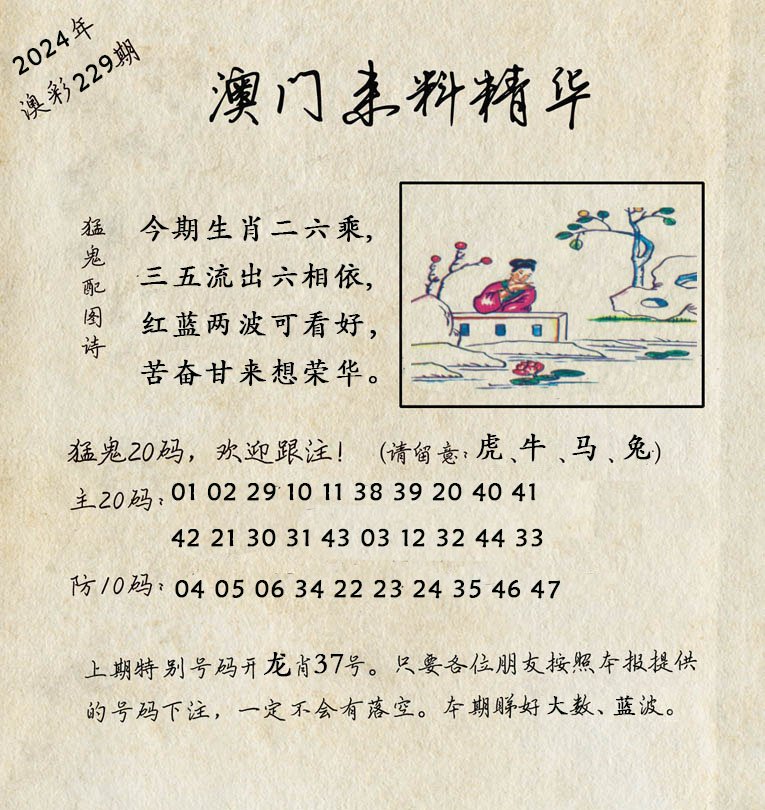 2024年
澳彩229期
澳门来料精华
猛鬼配图诗
今期生肖二六乘,
三五流出六相依,
红蓝两波可看好,
苦奋甘来想荣华。
猛鬼20码,欢迎跟注! (请留意:虎、牛、马、兔)
主20码: 01 02 29 10 11 38 39 20 40 41
42 21 30 31 43 03 12 32 44 33
防10码: 04 05 06 34 22 23 24 35 46 47
上期特别号码开龙肖37号。只要各位朋友按照本报提供
的号码下注,一定不会有落空。本期睇好大数、蓝波。